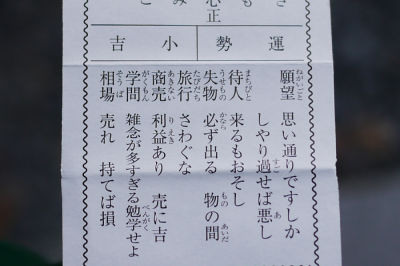 さ
も
心正
み
運勢
小吉
願望 思い通りですしか
しやり過せば悪し
待人 来るもおそし
失物 必ず出る 物の間
旅行 さわぐな
商売 利益あり 売に吉
学問 雑念が多すぎる勉学せよ
相場 売れ 持てば損